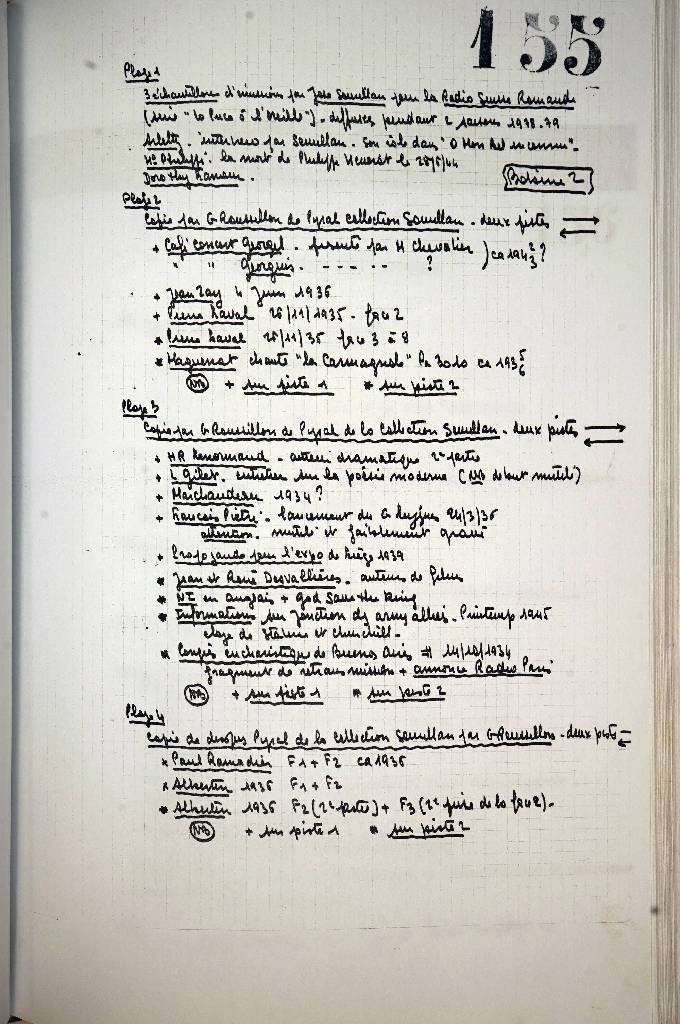 155
Plage 1
3 échantillons d'émissions par José Sourillan pour la Radio Suisse Romande
(série "la Puce à l'Oreille") - diffusées pendant 2 saisons 1978.79
Arletty. interview par Sourillan. son rôle dans "O Mon bel inconnu".
. la mort de Philippe Henriot le 28/6/44
Dorothy
Bobine 2
Plage 2
Copie par G Roussillon de Pyral collection Sourillan - deux pistes
+ Café concert Georgel. présenté par M Chevalier ) ca 1942 3 ?
" " Georgius. - - - - - - ?
+ Jean Zay 4 Juin 1936
+ Pierre Laval 26/11/1935 - face 2
* Pierre Laval 26/11/35 face 3 à 8
* Haguenat chante "la Carmagnole" Pa 3010 ca 1935 6
NB + sur piste 1 * sur piste 2
Plage 3
Copie par G Roussillon de Pyral de la collection Sourillan - deux pistes
+ HR Lenormand - auteur dramatique 2e partie
+ L Gillet. entretien sur la poésie moderne (NB début mutilé)
+ Marchandeau 1934 ?
+ François Piétri. lancement du 24/3/36
attention. mutilé et faiblement gravé
+ Propagande pour l'expo de Liège 1939
* Jean et René Desvallières. auteurs de films
* NI en anglais + god save the King
* Informations sur jonction des armées alliés. Printemps 1945
éloge de Staline et Churchill -
* Congrès eucharistique de Buenos Aires # 14/10/1934
fragment de retransmission + annonce Radio Paris
NB + sur piste 1 * sur piste 2
Plage 4
Copie de disques Pyral de la collection Sourillan par G Roussillon - deux pistes
* Paul Ramadier F1 + F2 ca 1936
* Albertin 1936 F1 + F2
* Albertin 1936 F2 (2e partie) + F3 (2e prise de la face 2) -
NB + sur piste 1 * sur piste 2